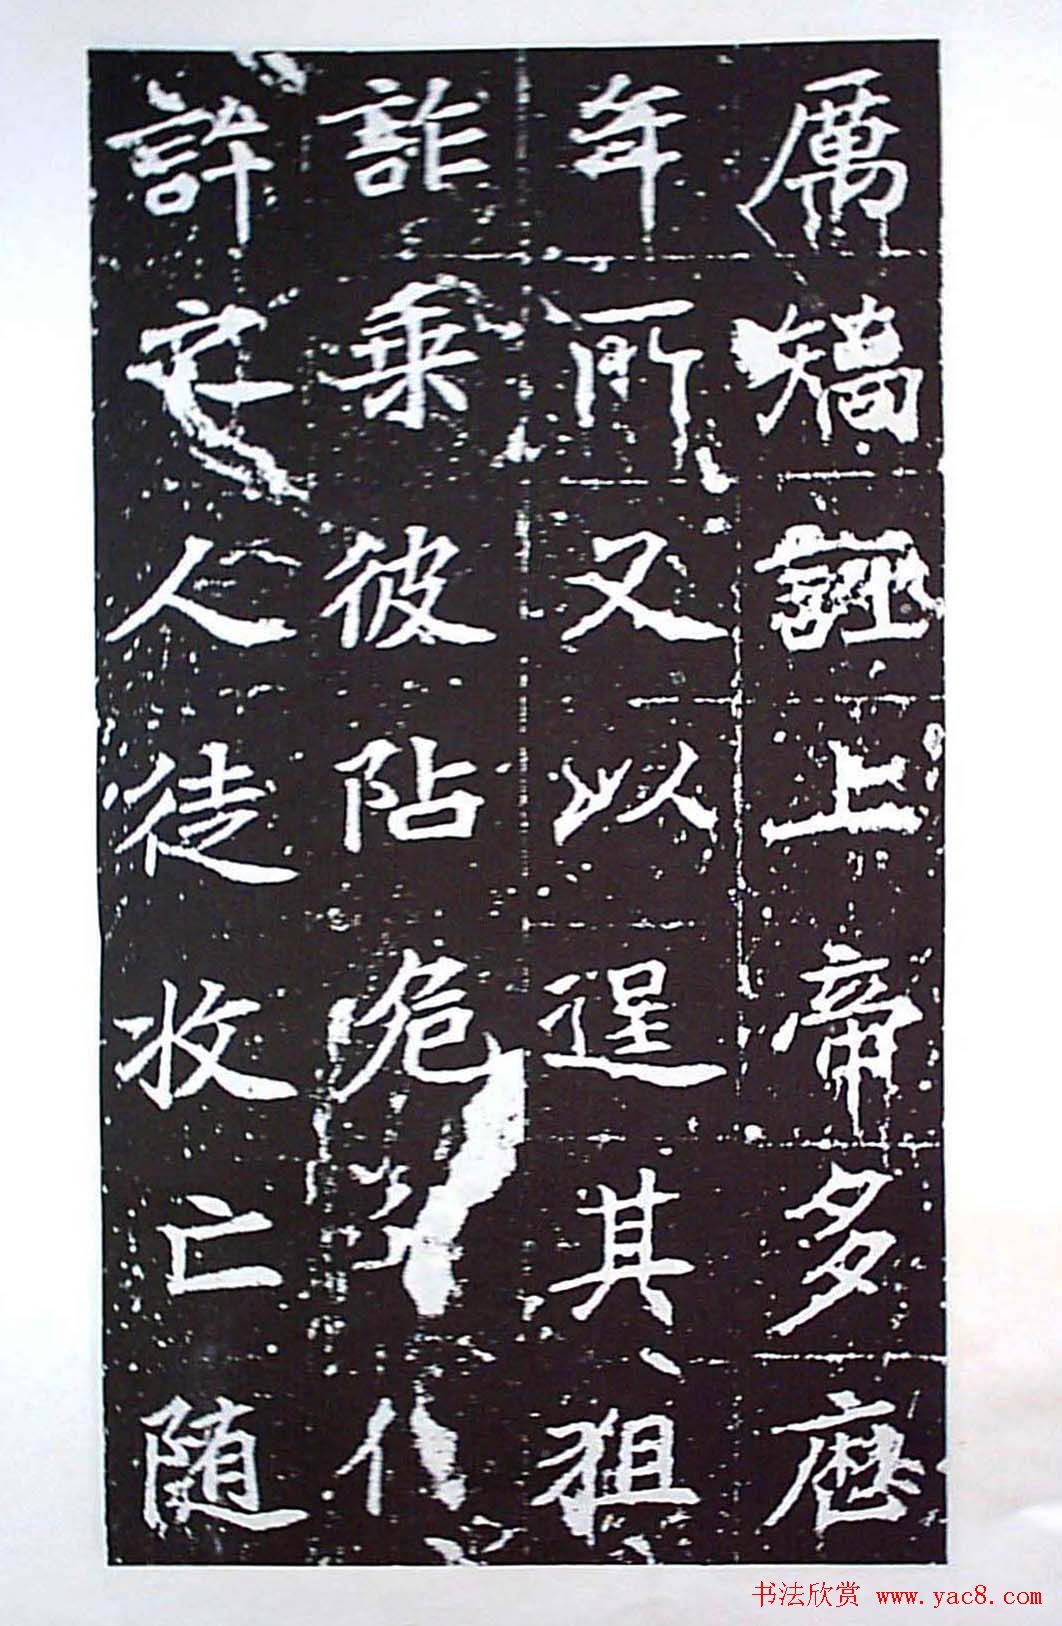 厲矯誣上帝多歷
年所又以逞其狙
詐乘彼阽危
許之人徒收亡随
书法欣赏 www.yac8.com